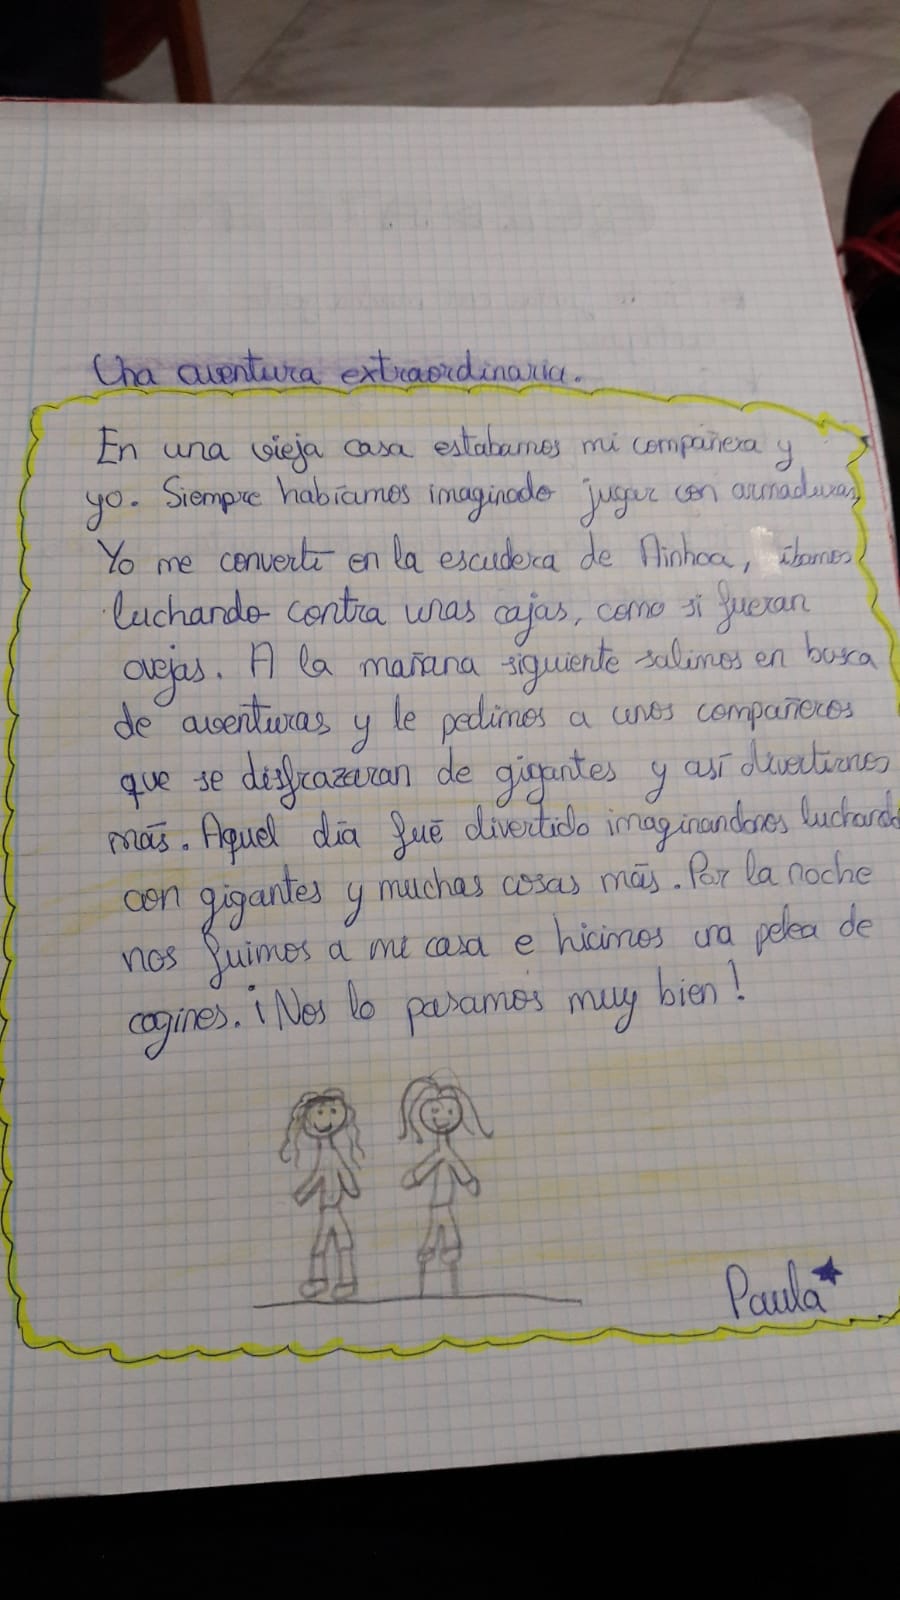 Una aventura extraordinaria.
En una vieja casa estabamos mi compañera y
yo. Siempre habíamos imaginado jugar con armaduras,
Yo me convertí en la escudera de Ainhoa, íbamos
luchando contra unas cajas, como si fueran
ovejas. A la mañana siguiente salimos en busca
de aventuras y le pedimos a unos compañeros
que se disfrazaran de gigantes y así divertirnos
más. Aquel día fué divertido imaginandonos luchando
con gigantes y muchas cosas más. Por la noche
nos fuimos a mi casa e hicimos una pelea de
cogines. ¡Nos lo pasamos muy bien!
Paula